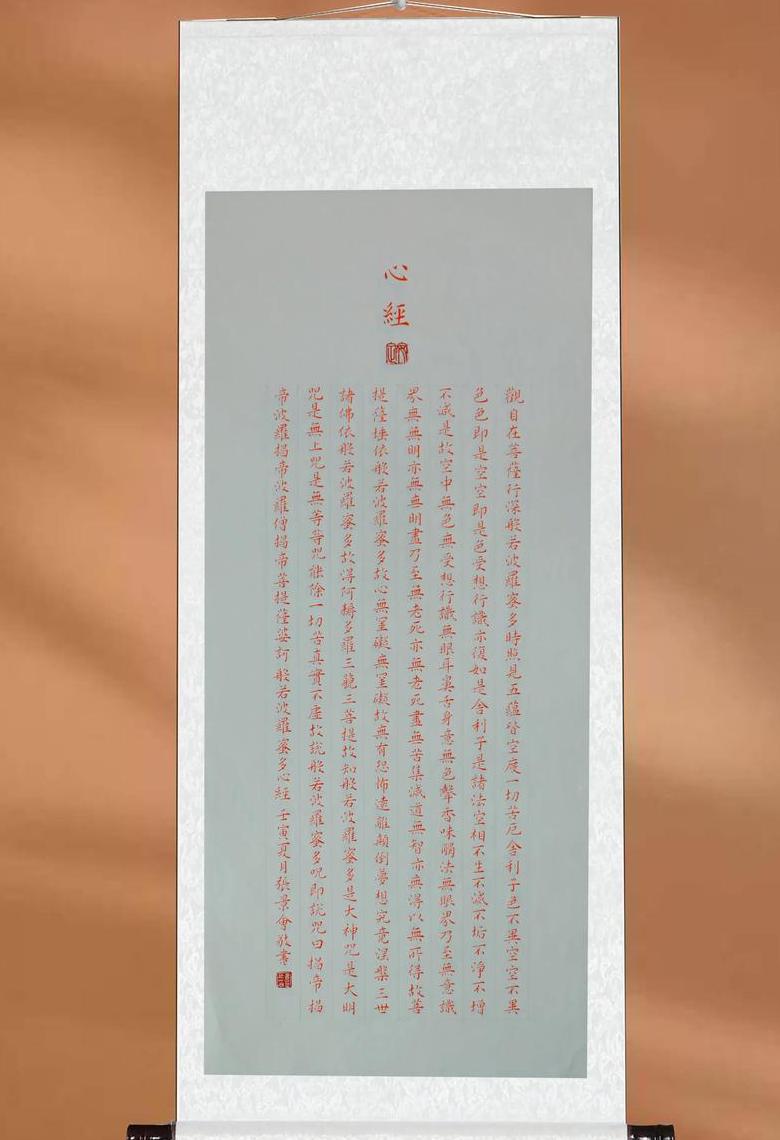 心
經
觀自在菩薩行深般若波羅蜜多時照見五蘊皆空度一切苦厄舍利子色不異空空不異
色色即是空空即是色受想行識亦復如是舍利子是諸法空相不生不滅不垢不淨不增
不減是故空中無色無受想行識無眼耳鼻舌身意無色聲香味觸法無眼界乃至無意識
界無無明亦無無明盡乃至無老死亦無老死盡無苦集滅道無智亦無得以無所得故菩
提薩埵依般若波羅蜜多故心無罣礙無罣礙故無有恐怖遠離顛倒夢想究竟涅槃三世
諸佛依般若波羅蜜多故得阿耨多羅三藐三菩提故知般若波羅蜜多是大神咒是大明
咒是無上咒是無等等咒能除一切苦真實不虛故說般若波羅蜜多呪即說咒曰揭帝揭
帝波羅揭帝波羅僧揭帝菩提薩婆訶般若波羅蜜多心經 壬寅夏月張景會敬書